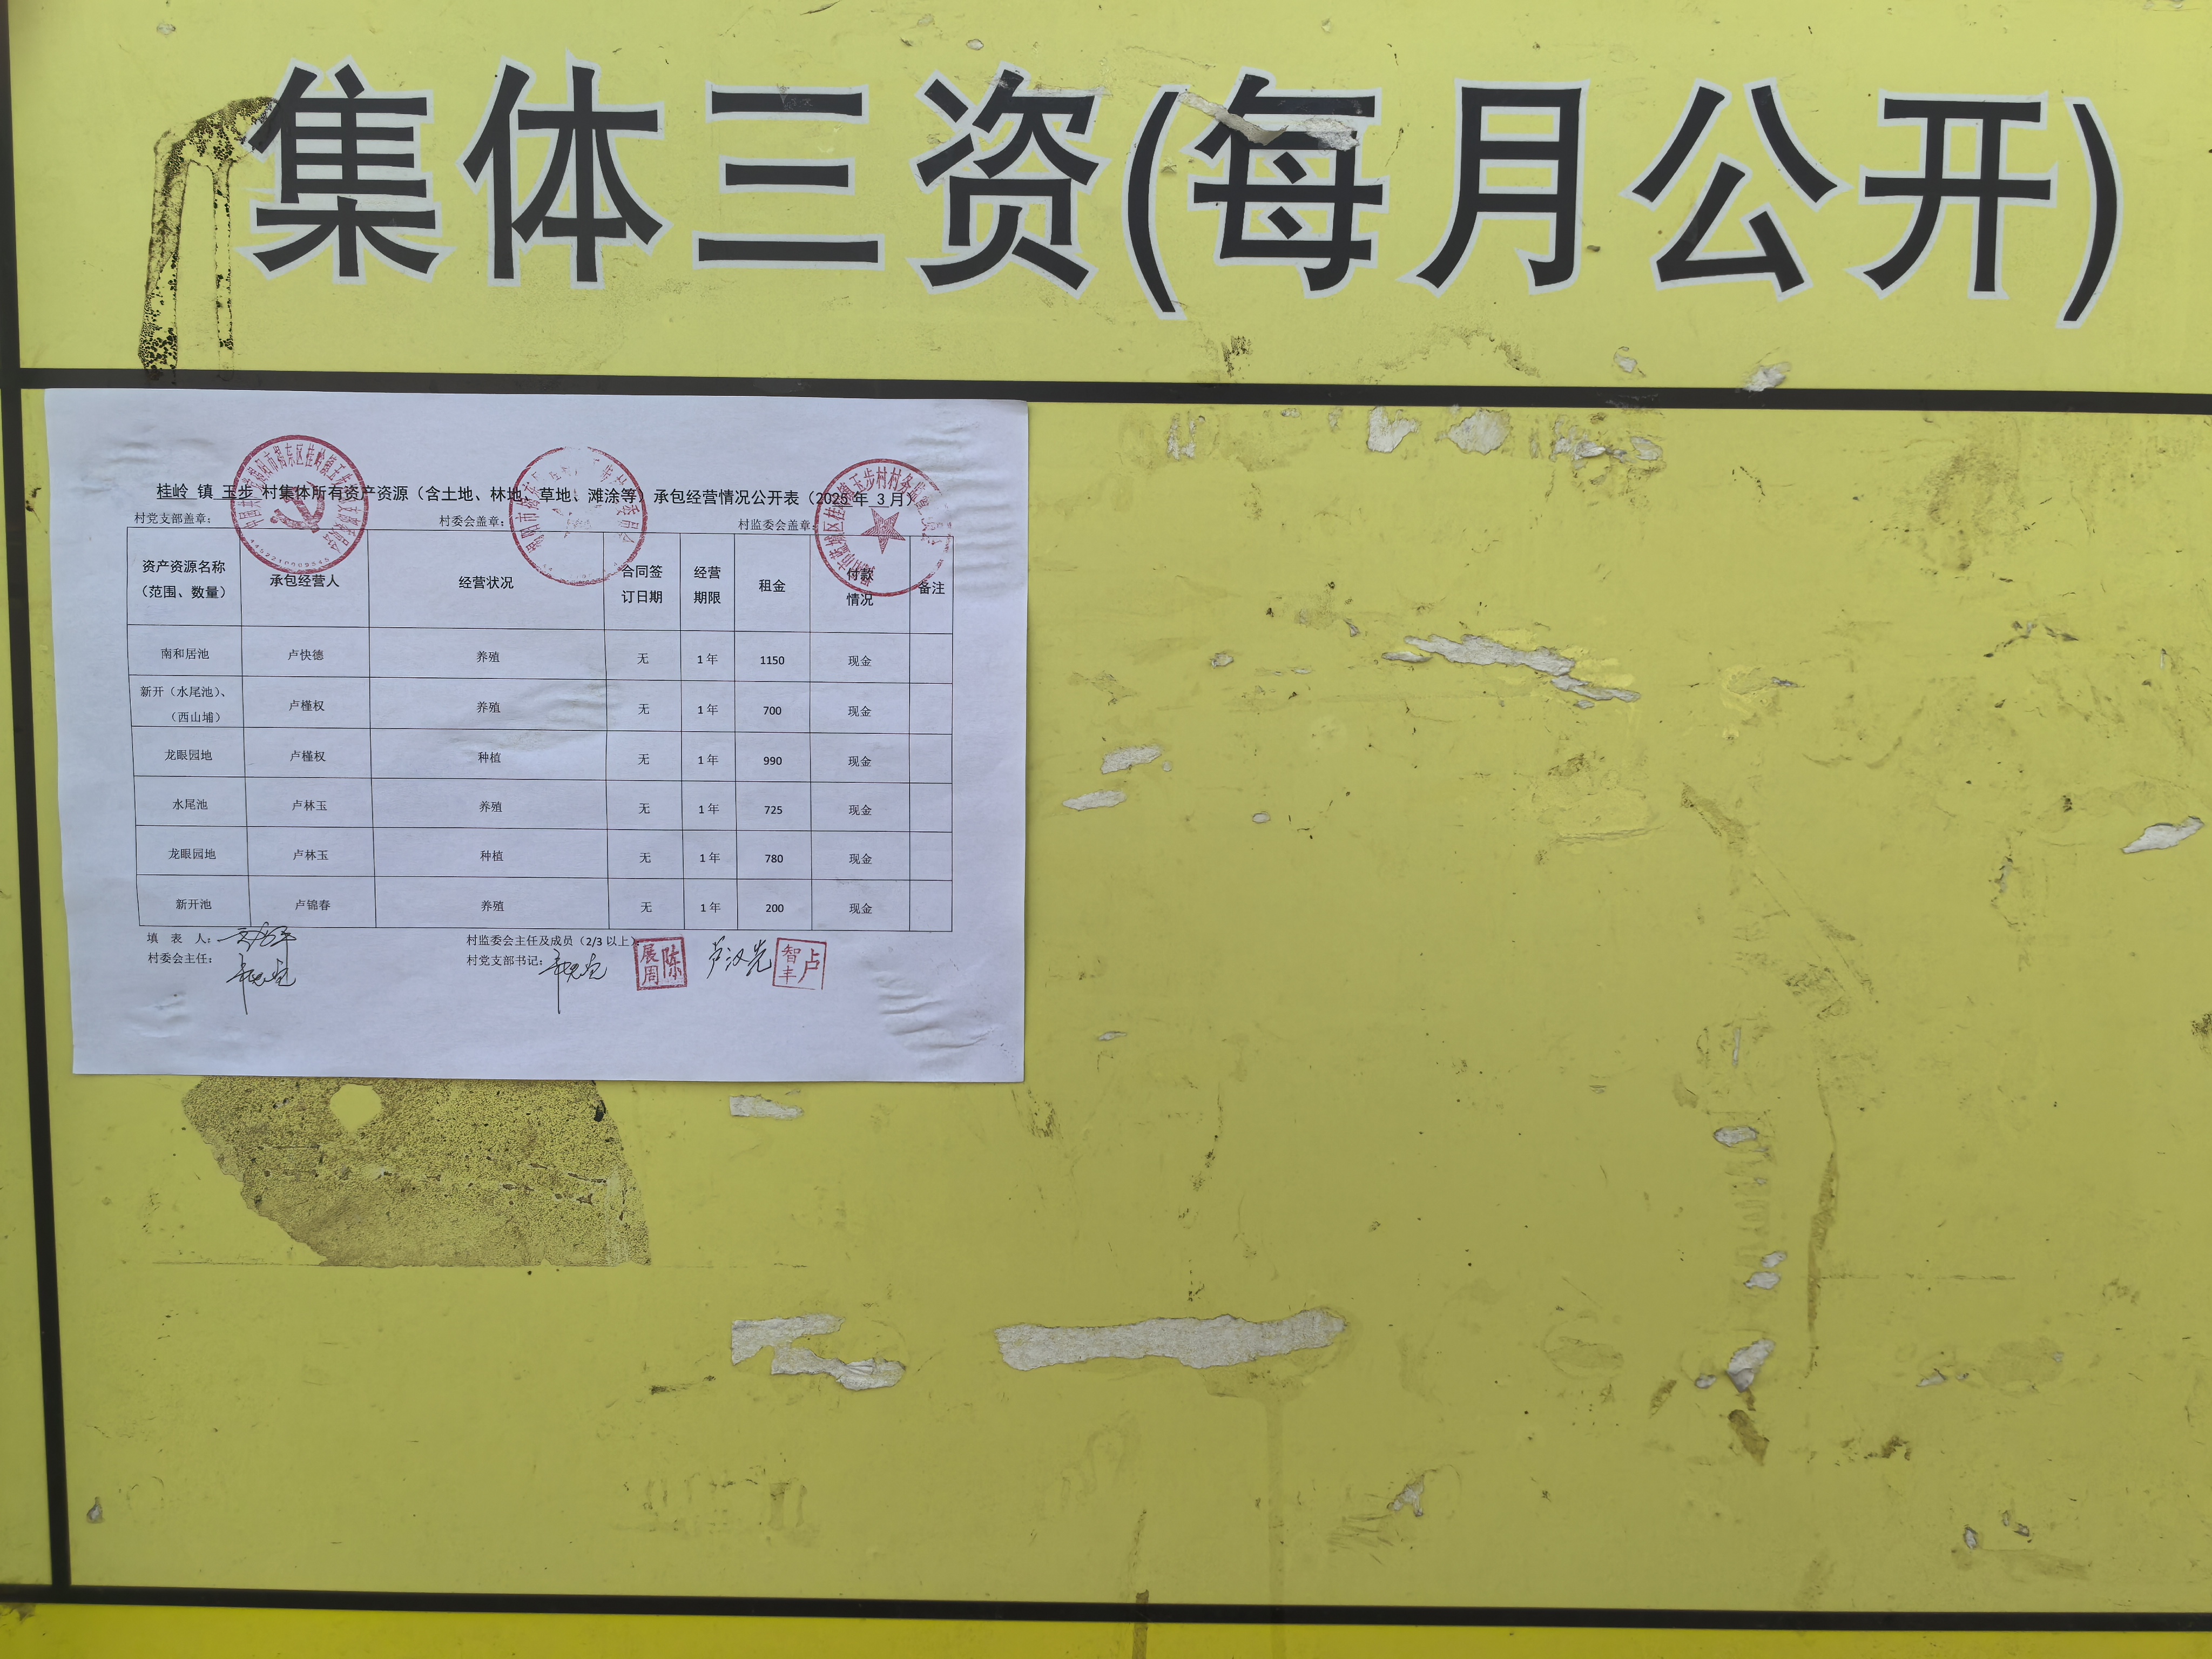 集体三资(每月公开)
桂岭 镇 玉步 村集体所有资产资源（含土地、林地、草地、滩涂等）承包经营情况公开表（2025年 3 月）
村党支部盖章： 村委会盖章： 村监委会盖章：
资产资源名称（范围、数量） 承包经营人 经营状况 合同签订日期 经营期限 租金 付款情况 备注
南和居池 卢快德 养殖 无 1 年 1150 现金
新开（水尾池）、（西山埔） 卢槿权 养殖 无 1 年 700 现金
龙眼园地 卢槿权 种植 无 1 年 990 现金
水尾池 卢林玉 养殖 无 1 年 725 现金
龙眼园地 卢林玉 种植 无 1 年 780 现金
新开池 卢锦春 养殖 无 1 年 200 现金
填 表 人： 村监委会主任及成员（2/3 以上）
村委会主任： 村党支部书记： 陈展周 卢汉光 卢智丰